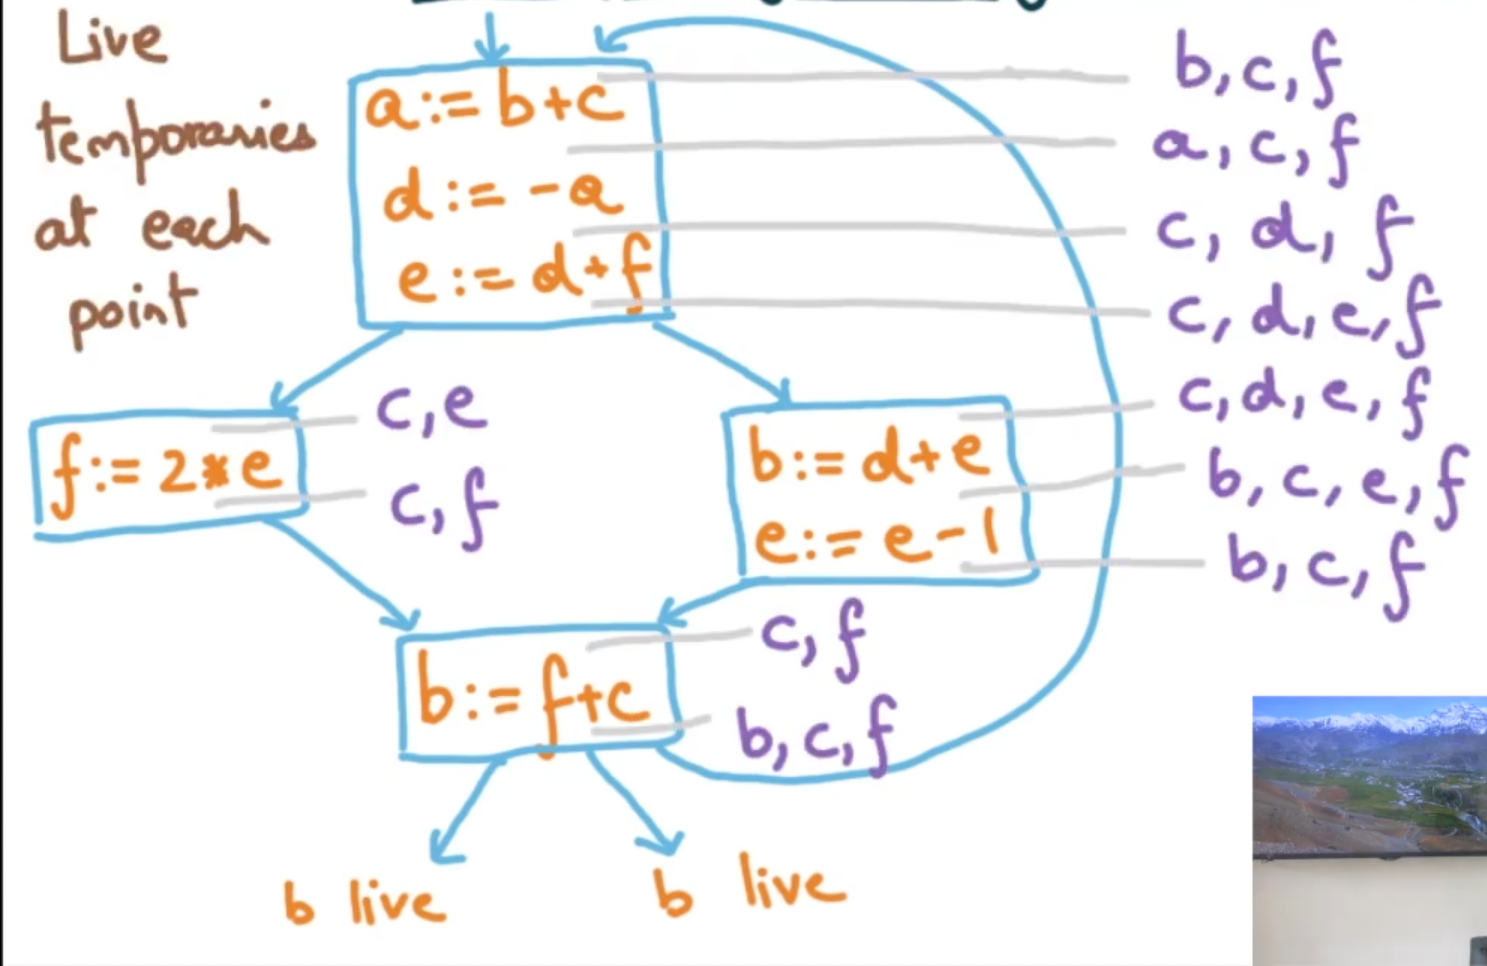 Live
temporaries
at each
point
a := b+c
d := -a
e := d+f
b, c, f
a, c, f
c, d, f
c, d, e, f
f := 2*e
c, e
c, f
b := d+e
e := e-1
c, d, e, f
b, c, e, f
b, c, f
b := f+c
c, f
b, c, f
b live
b live